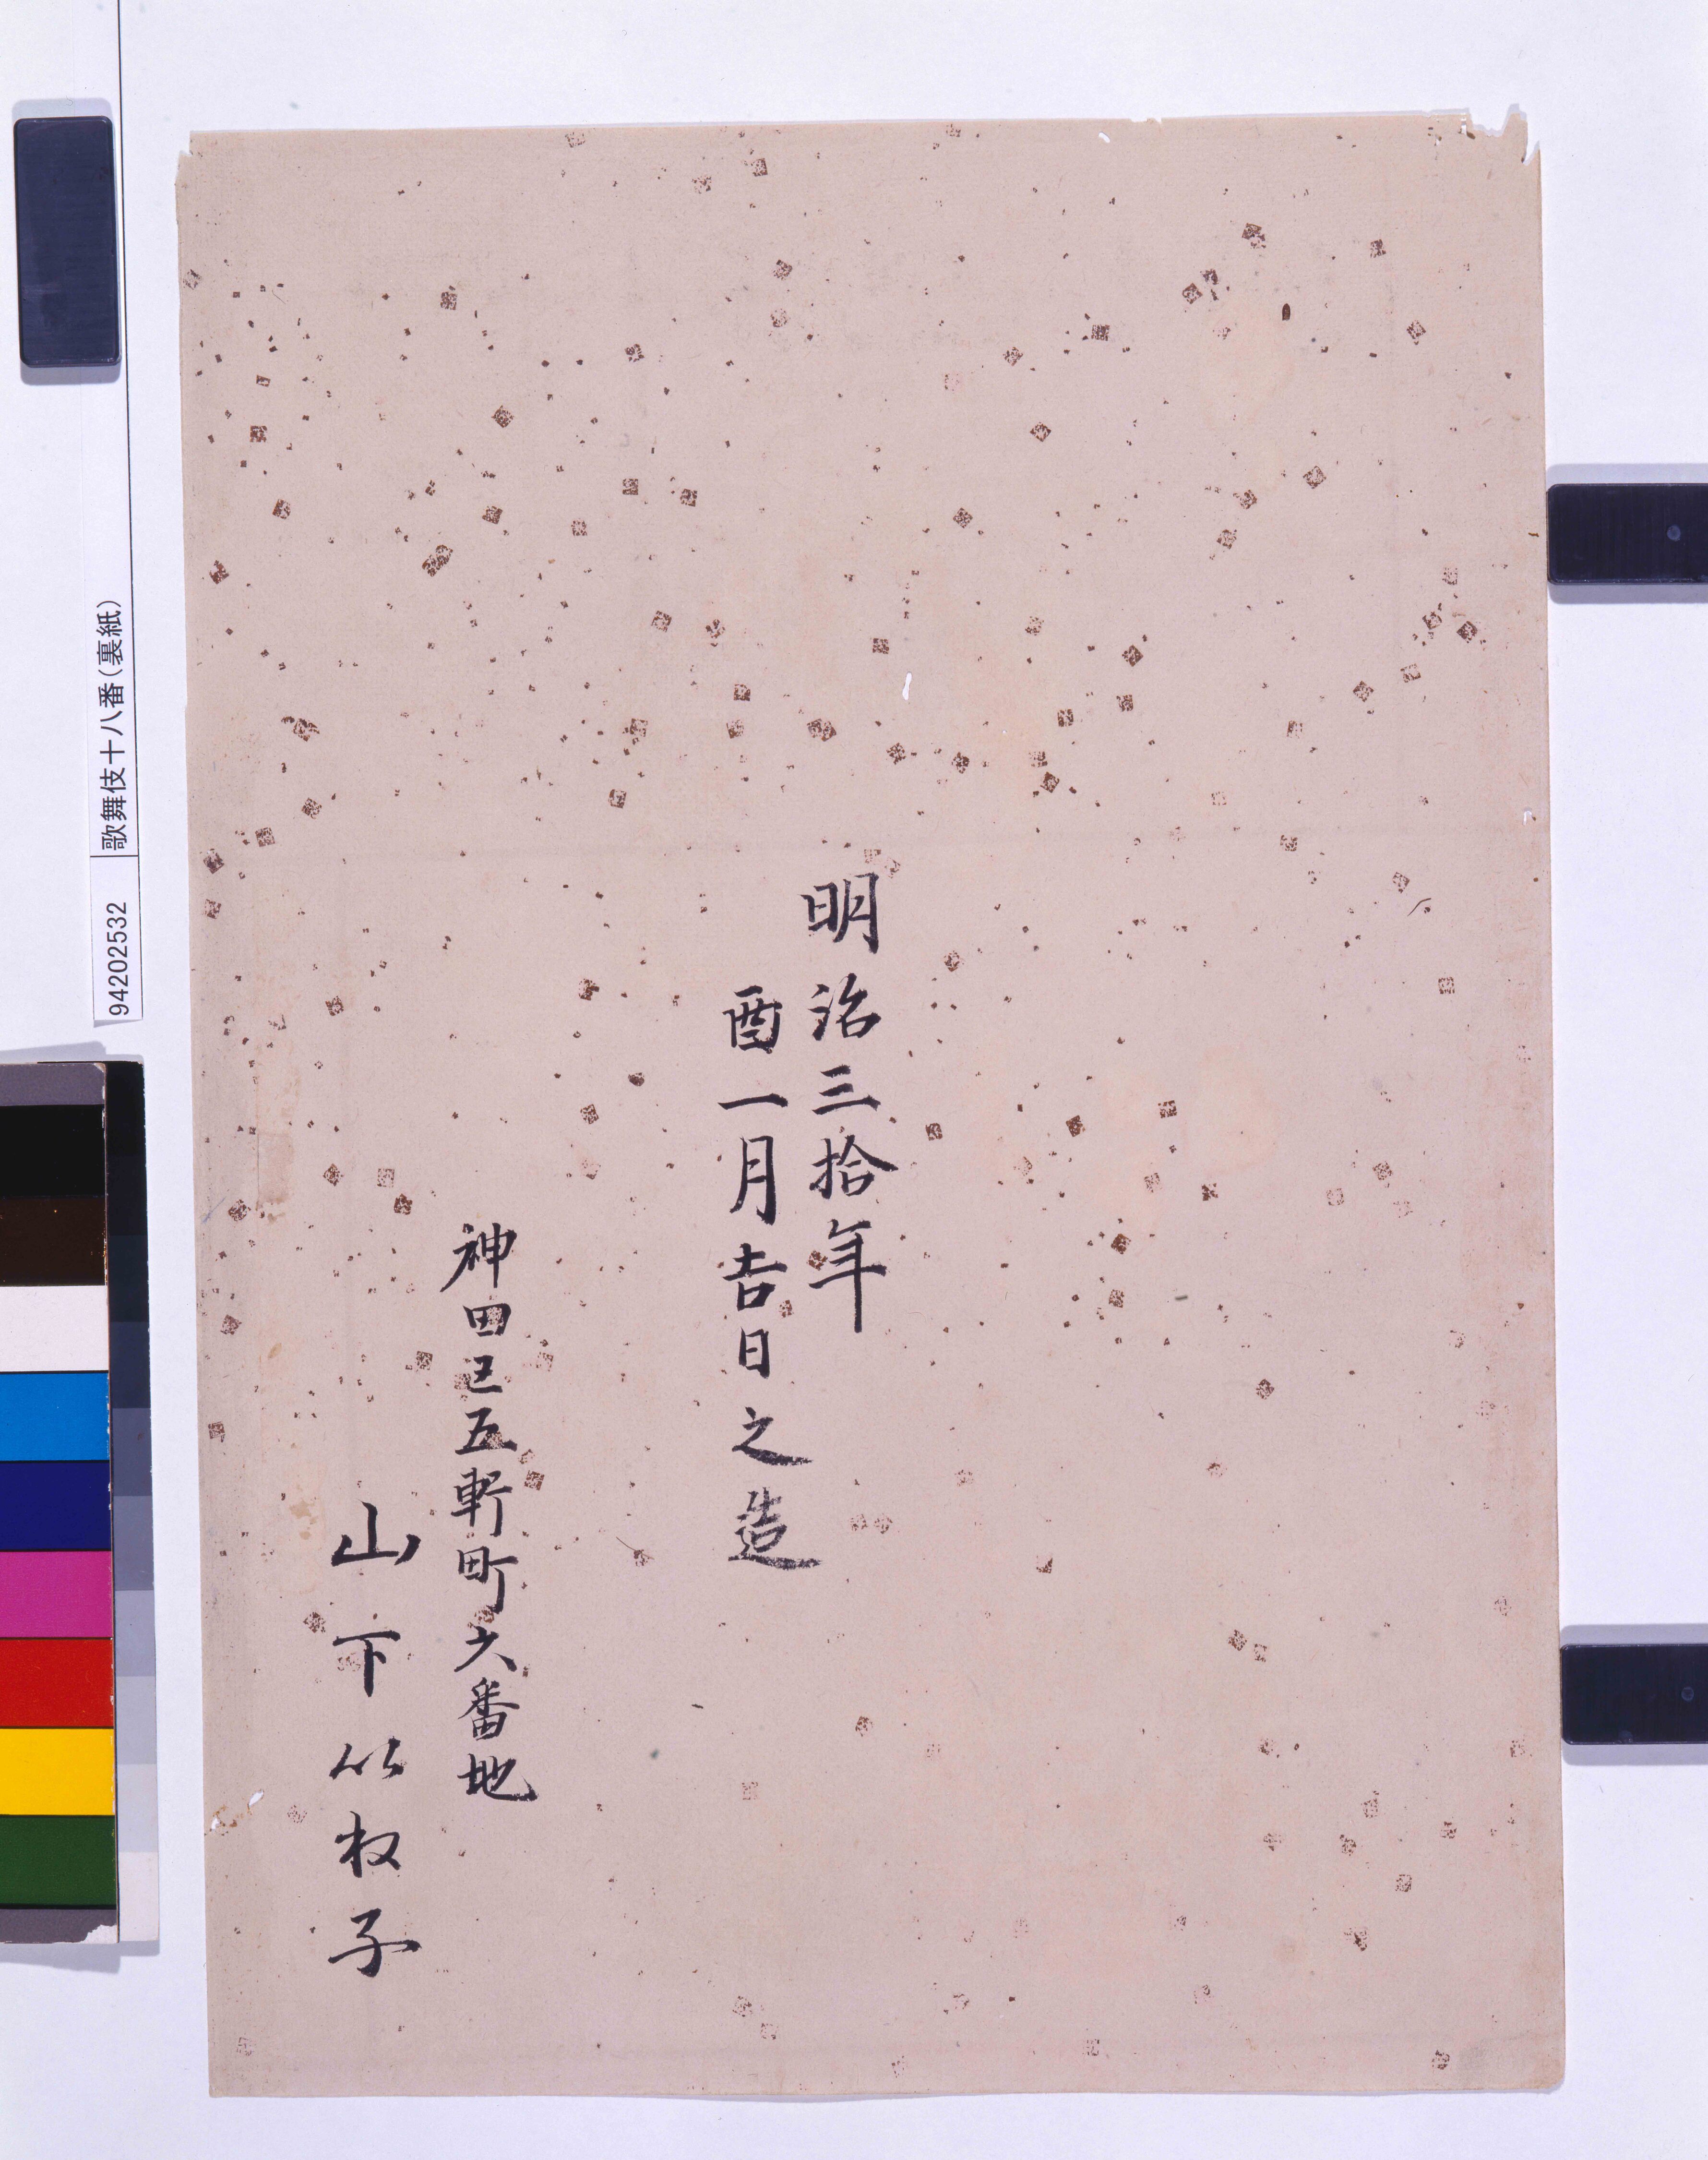 明治三拾年
酉一月吉日之造
神田区五軒町六番地
山下
子
94202532 歌舞伎十八番(裏紙)